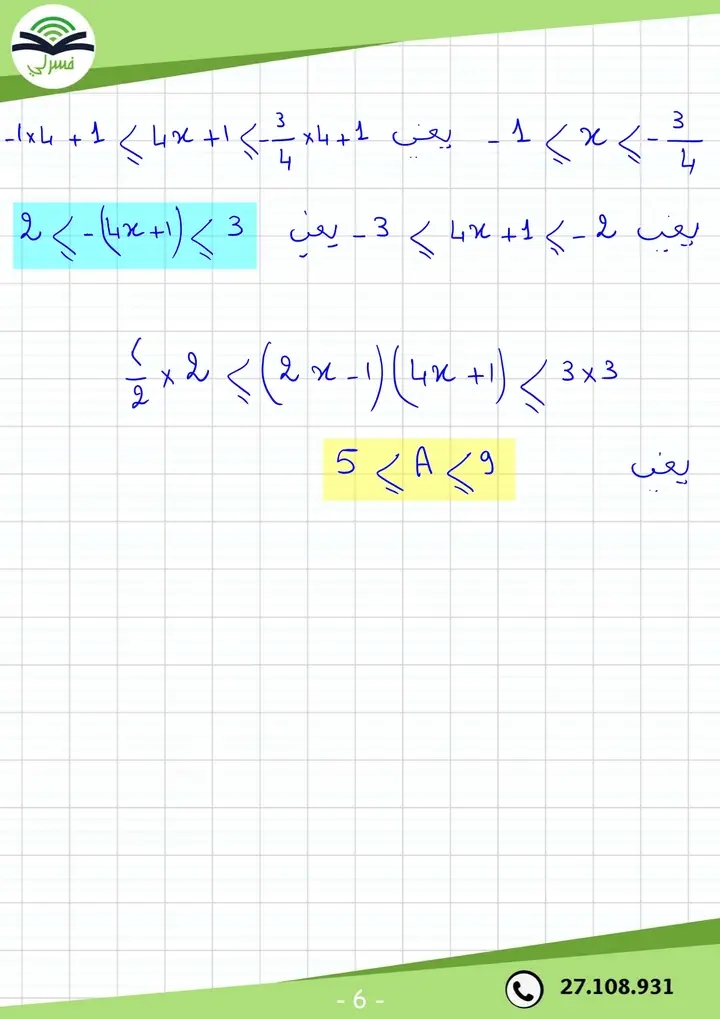 فسرلي
-1 ⩽ x ⩽ -3/4 يعني -1×4 + 1 ⩽ 4x + 1 ⩽ -3/4 ×4+1
يعني -3 ⩽ 4x + 1 ⩽ -2 يعني 2 ⩽ -(4x+1) ⩽ 3
/2 × 2 ⩽ (2x-1)(4x+1) ⩽ 3×3
يعني 5 ⩽ A ⩽ 9
27.108.931
- 6 -